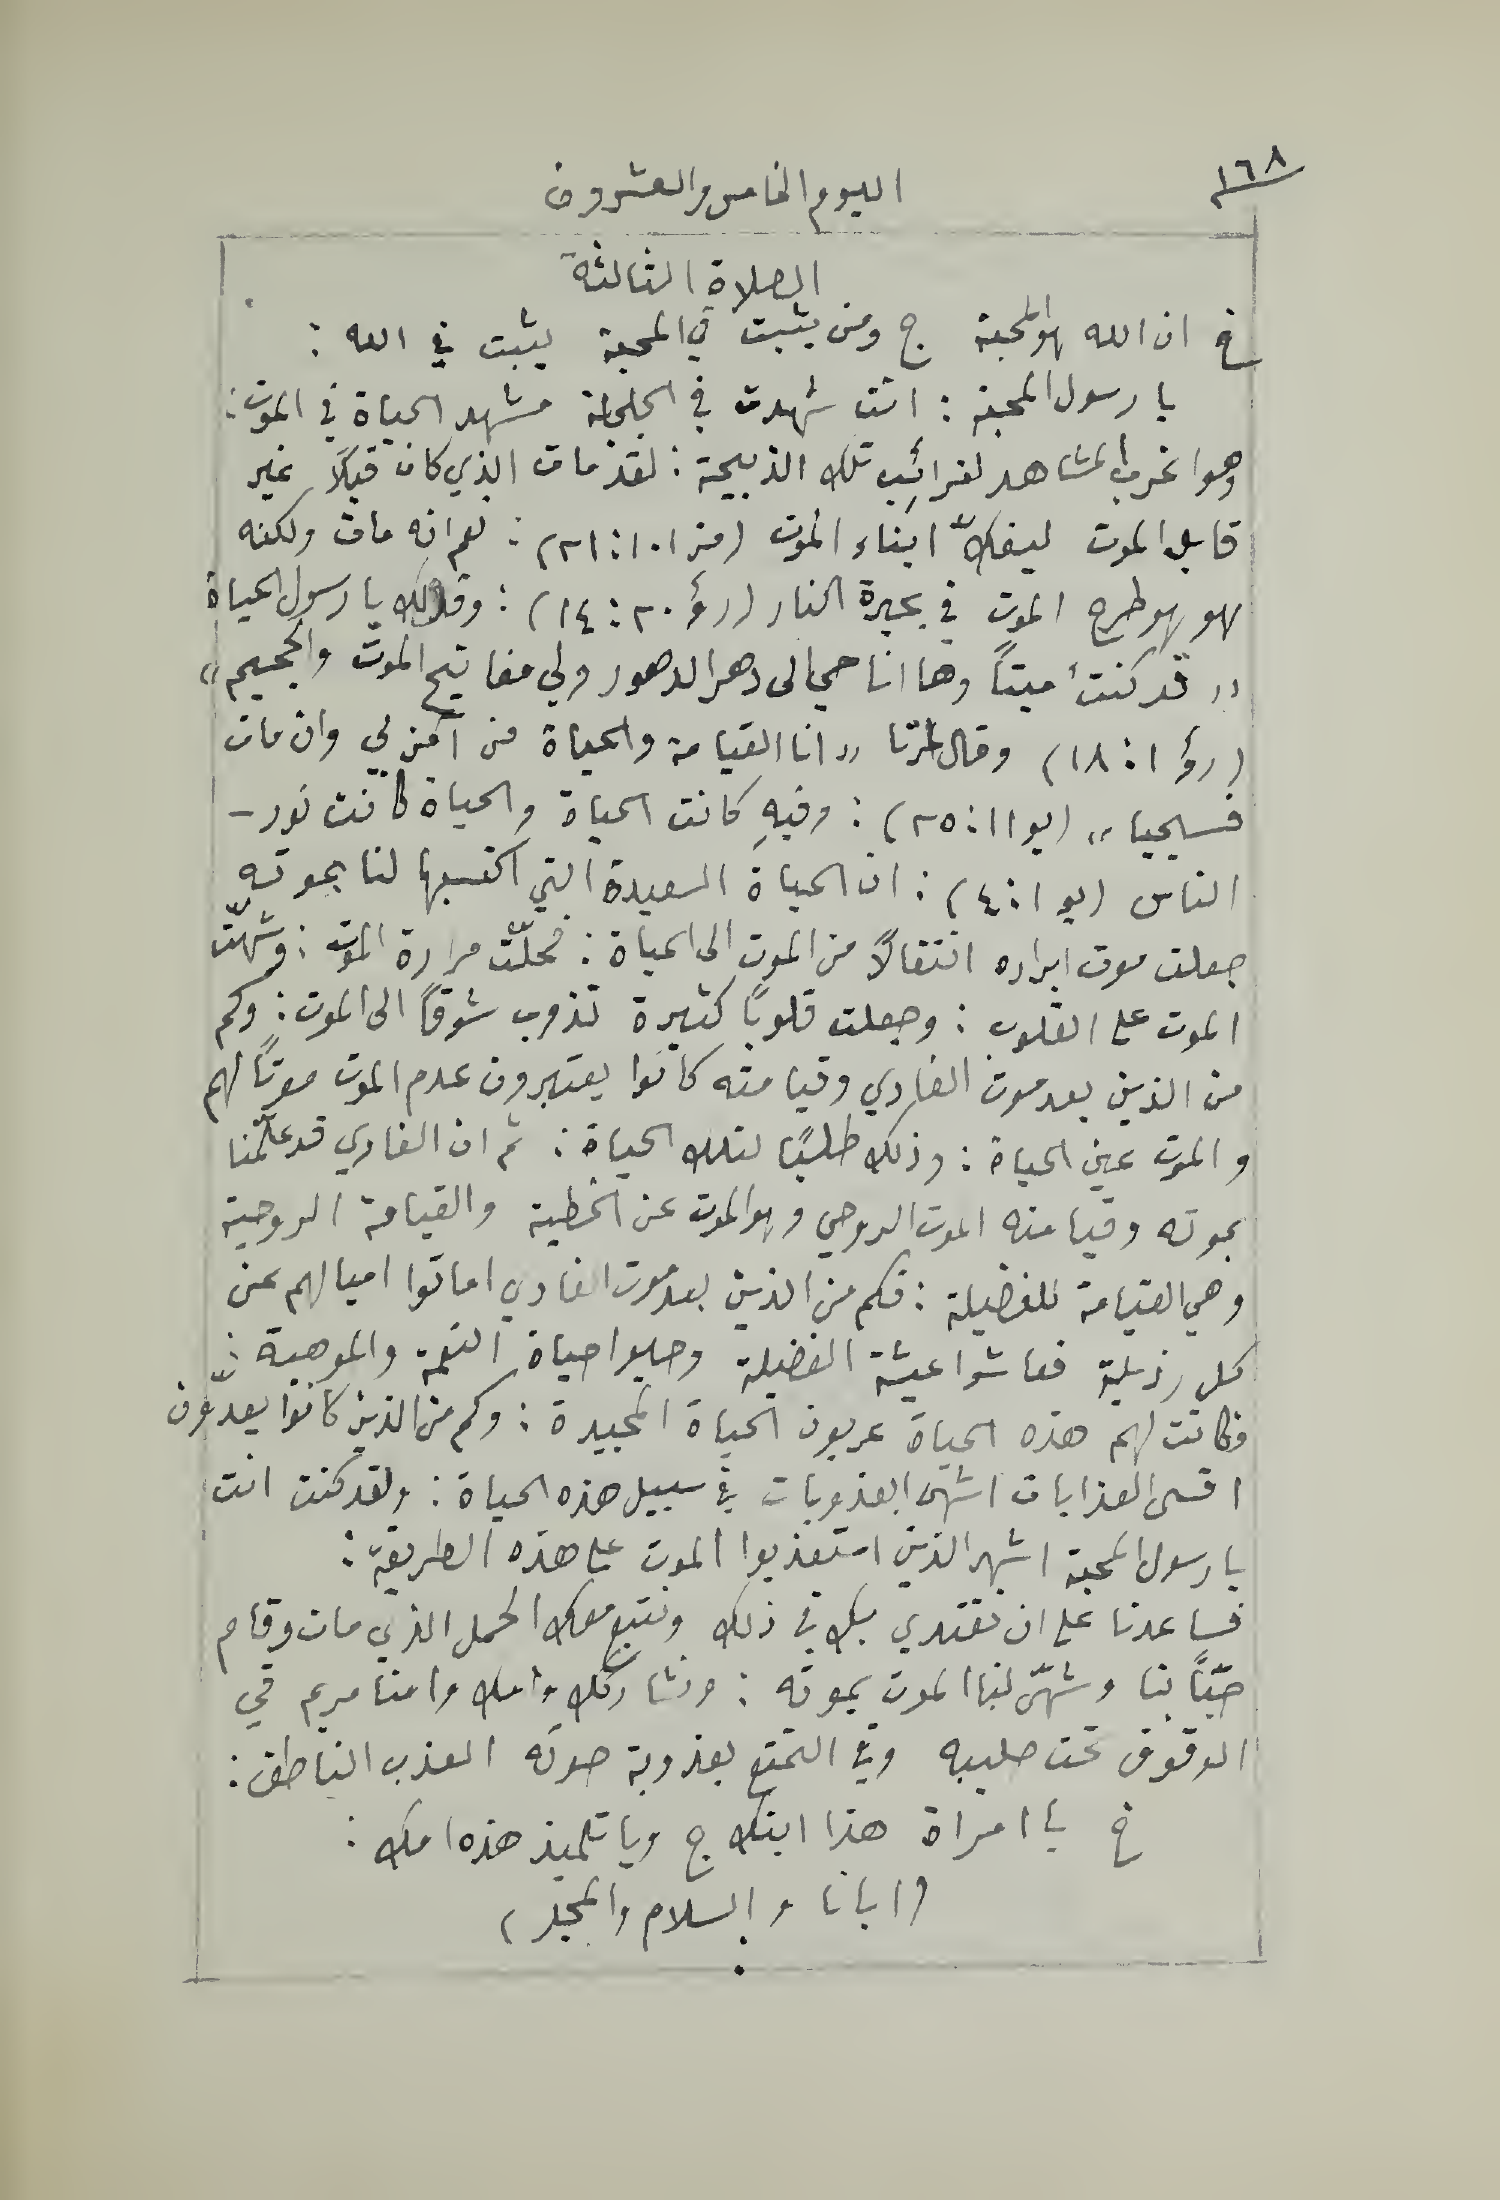 ١٦٨
اليوم الخامس والعشرون
الصلاة الثالثة
خ ان الله هو المحبة ج ومن يثبت في المحبة يثبت في الله :
يا رسول المحبة : انت شهدت في الجلجلة مشهد الحياة في الموت :
وهو اغرب المشاهد لغرائب تلك الذبيحة : لقد مات الذي كان قبلاً غير
قابل الموت ليفكّ ابناء الموت (مز ١٠١ : ٢١) : نعم انه مات ولكنه
هو هو طرح الموت في بحيرة النار (رؤ ٢٠ : ١٤) : وقال لك يا رسول الحياة
« قد كنتُ ميتاً وها انا حي الى دهر الدهور ولي مفاتيح الموت والجحيم »
(رؤ ١ : ١٨) وقال لمرتا « انا القيامة والحياة من آمن بي وان مات
فسيحيا » (يو ١١ : ٢٥) : وفيهِ كانت الحياة والحياة كانت نور –
الناس (يو ١ : ٤) : ان الحياةَ السعيدة التي اكتسبها لنا بموته
جعلت موت ابراره انتقالاً من الموت الى الحياة : فحلّت مرارة الموت : وشهّت
الموت على القلوب : وجعلت قلوباً كثيرة تذوب شوقاً الى الموت : وكم
من الذين بعد موت الفادي وقيامته كانوا يعتبرون عدم الموت موتاً لهم
والموت عين الحياة : وذلك طلباً لتلك الحياة : ثم ان الفادي قد علّمنا
بموته وقيامته الموت الروحي وهو الموت عن الخطية والقيامة الروحية
وهي القيامة للفضيلة : فكم من الذين بعد موت الفادي اماتوا اميالهم عن
كل رذيلة فعاشوا عيشة الفضيلة وحيوا حياة النعمة والموهبة :
فكانت لهم هذه الحياة عربون الحياة المجيدة : وكم من الذين كانوا يعدّون
اقسى العذابات اشهى العذوبات في سبيل هذه الحياة : ولقد كنت انت
يا رسول المحبة اشهر الذين استعذبوا الموت على هذه الطريقة :
فساعدنا على ان نقتدي بك في ذلك ونتبع معك الحمل الذي مات وقام
حبّاً بنا وشهّى لنا الموت بموته : ونشاركك وامك وامنا مريم في
الوقوف تحت صليبه وفي التمتع بعذوبة صوته العذب الناطق :
خ يا امراة هذا ابنك ج ويا تلميذ هذه امك :
(ابانا والسلام والمجد)